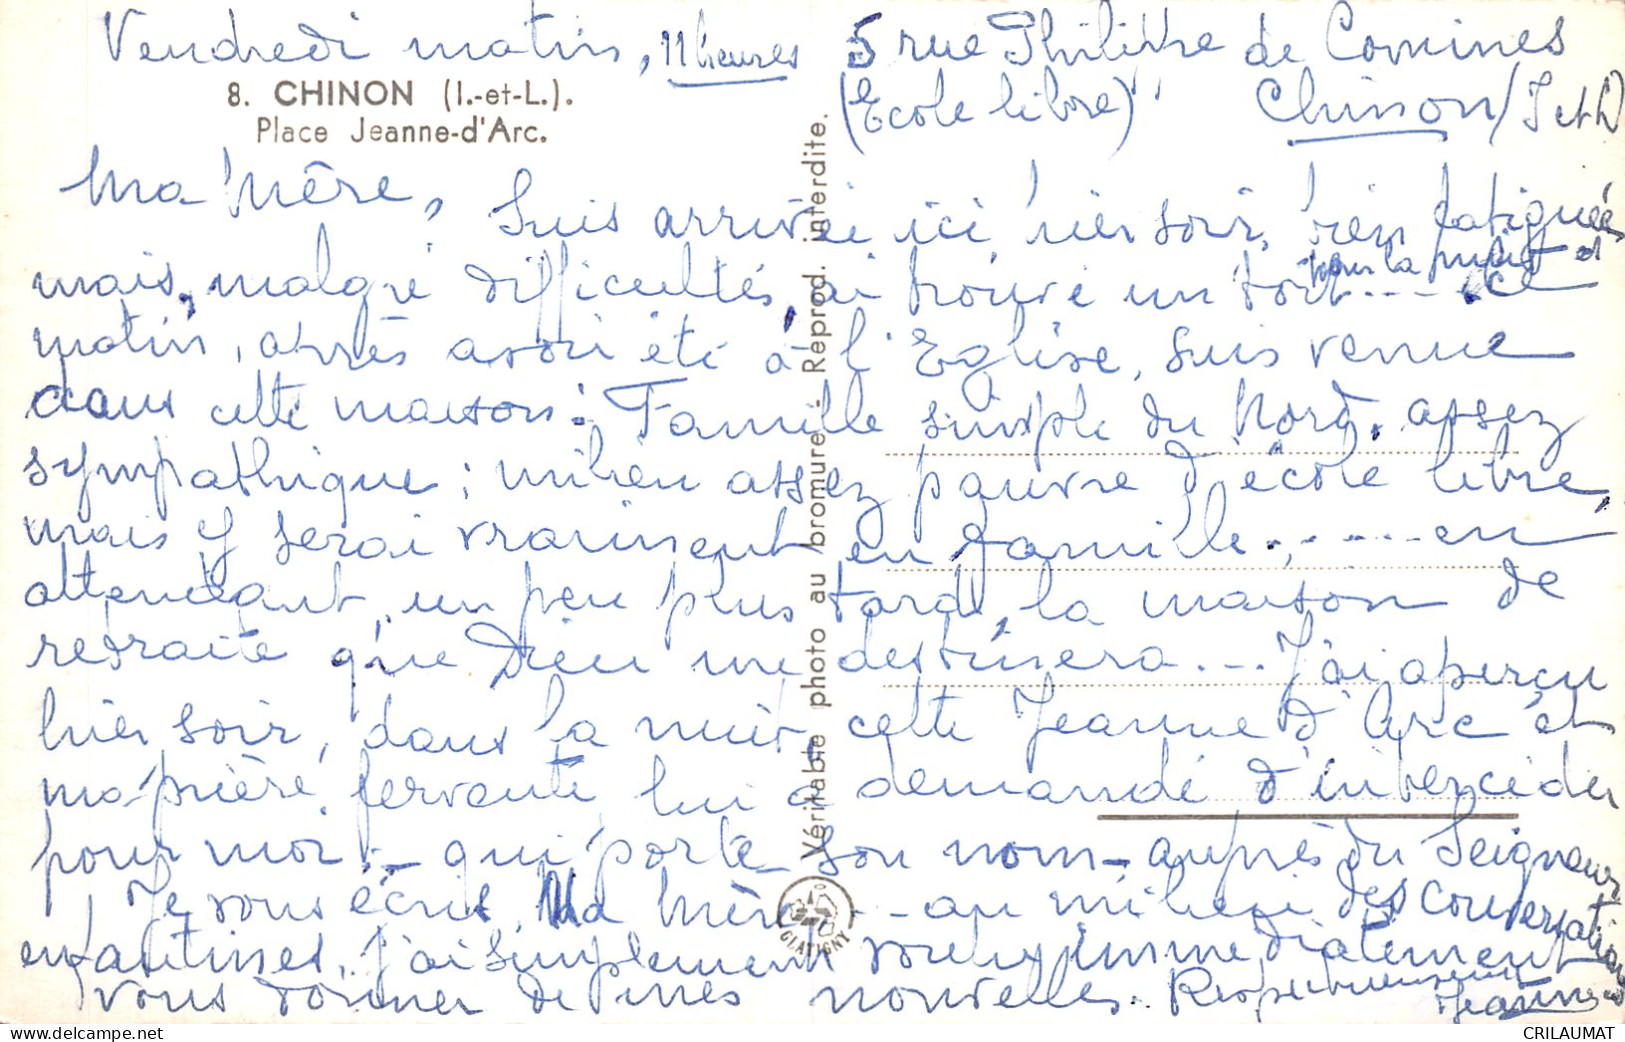 Vendredi matin, 11 heures
5 rue Philippe de Comines
(Ecole libre)
Chinon (I et L)
8. CHINON (I.-et-L.).
Place Jeanne-d'Arc.
Ma Mère,
Suis arrivée ici hier soir, bien fatiguée
pour la nuit et
mais, malgré difficultés, ai trouvé un toit .... ce
matin, après avoir été à l'Eglise, suis venue
dans cette maison : Famille simple du Nord, assez
sympathique ; milieu assez pauvre d'école libre,
mais y serai vraiment en famille ....... en
attendant, un peu plus tard, la maison de
retraite que Dieu me destinera ... J'ai aperçu
hier soir, dans la nuit, cette Jeanne d'Arc et
ma prière fervente lui a demandé d'intercéder
pour moi - qui porte son nom - auprès du Seigneur
Je vous écris, Ma Mère - au milieu des conversations
enfantines. J'ai simplement voulu immédiatement
vous donner de mes nouvelles. Respectueusement
Jeanne
Véritable photo au bromure - Reprod. interdite.
GLATIGNY
CRILAUMAT